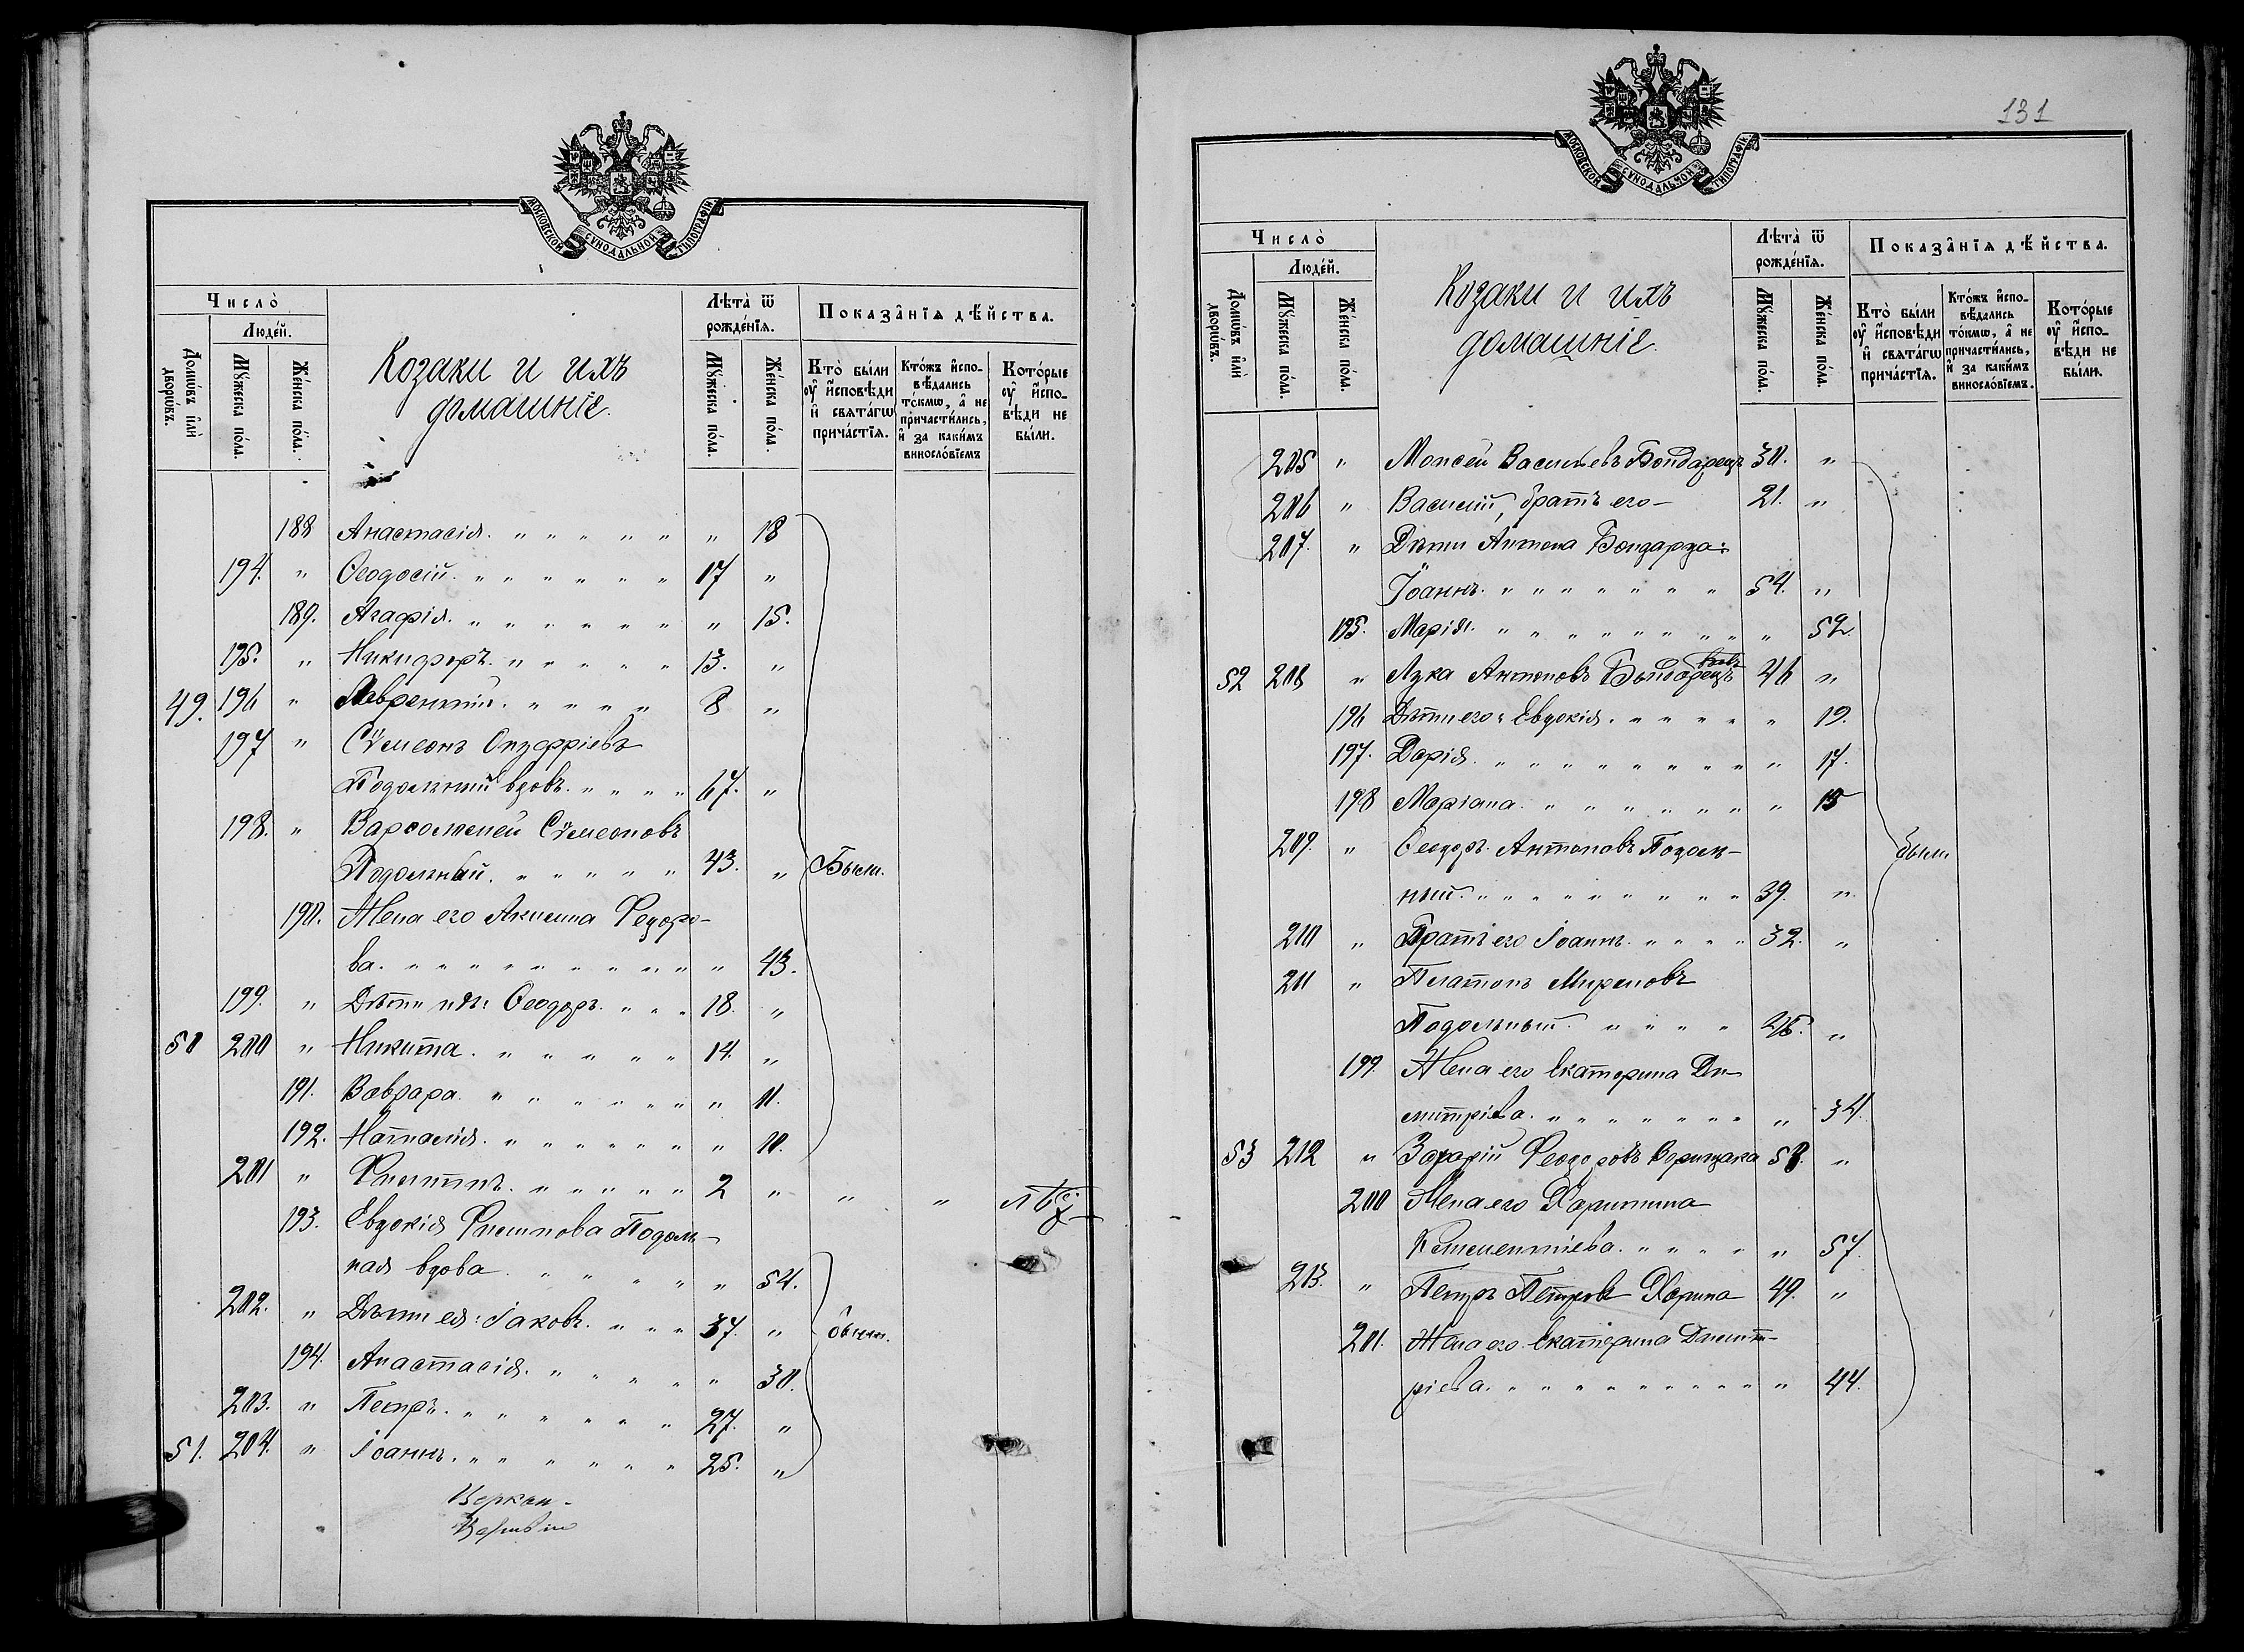 МОСКОВСКОЙ СѴНОДАЛЬНОЙ ТИПОГРАФІИ
Число̀
Людéй.
Домѡ́въ и҆лѝ дворѡ́въ.
Мꙋ́жеска по́ла.
Же́нска по́ла.
Козаки и ихъ
домашніе.
Лѣта̀ ѿ
рожде́нїѧ.
Мꙋ́жеска по́ла.
Же́нска по́ла.
Показа̂нїѧ дѣ́йства.
Кто̀ бы́ли ᲂу҆ и҆сповѣ́ди и҆ свѧта́гѡ прича́стїѧ.
Кто́жъ и҆сповѣ́дались то́кмѡ, а҆ не причасти́лись, и҆ за каки́мъ виносло́вїемъ
Кото́рые ᲂу҆ и҆сповѣ́ди не бы́ли.
188 Анастасія. " " " " " " 18
194. " Ѳеодосій. " " " " " " 17 "
189. Агафія. " " " " " " " 15.
195. " Никифоръ. " " " " " 13. "
49. 196 " Лаврентій. " " " " " 8 "
197 " Сѵмеонъ
Подольный вдовъ. " " " " 67. "
198. " Варѳоломей Сѵмеоновъ
Подольный. " " " " " 43. " Были.
190. Жена его Акилина Федоро-
ва. " " " " " " " " " " 43.
199. " Дѣти ихъ: Ѳеодоръ. " " " 18. "
50 200 " Никита. " " " " " " 14. "
191. Варвара. " " " " " " " 11.
192. Наталія. " " " " " " " 10.
201 " Филиппъ. " " " " " 2 " " "
193. Евдокія Филипова Подоль-
ная вдова. " " " " " 54.
202. " Дѣти ея: Іаковъ. " " " 37. " были.
194. Анастасія. " " " " " 30.
203. " Петръ. " " " " " " 27. "
51. 204. " Іоаннъ. " " " " " " 25. "
131
МОСКОВСКОЙ СѴНОДАЛЬНОЙ ТИПОГРАФІИ
Число̀
Людéй.
Домѡ́въ и҆лѝ дворѡ́въ.
Мꙋ́жеска по́ла.
Же́нска по́ла.
Козаки и ихъ
домашніе.
Лѣта̀ ѿ
рожде́нїѧ.
Мꙋ́жеска по́ла.
Же́нска по́ла.
Показа̂нїѧ дѣ́йства.
Кто̀ бы́ли ᲂу҆ и҆сповѣ́ди и҆ свѧта́гѡ прича́стїѧ.
Кто́жъ и҆сповѣ́дались то́кмѡ, а҆ не причасти́лись, и҆ за каки́мъ виносло́вїемъ.
Кото́рые ᲂу҆ и҆сповѣ́ди не бы́ли.
205 " Моисей Васильевъ Бондарецъ 30. "
206 " Василій, братъ его - 21. "
207. " Дѣти Антона Бондарца:
Іоаннъ. " " " " " " " " 54. "
195. Марія. " " " " " " " " " 52.
52 208 " Лука Антоновъ Бондарецъ вдовъ 46 "
196 Дѣти его: Евдокія. " " " " " 19.
197. Дарія. " " " " " " " " " 17.
198 Маріана. " " " " " " " " 15
209. " Ѳеодоръ Антоновъ Подоль-
ный. " " " " " " " " " 39. " были
210 " Братъ его Іоаннъ. " " " " 32. "
211 " Платонъ Мироновъ
Подольный. " " " " 45. "
199. Жена его Екатерина Ди-
митріева. " " " " " " " " 34.
53 212 " Захарій Феодоровъ 58. "
200 Жена его Харитина
Клементіева. " " " " " 57.
213. " Петръ Петровъ Харина 49. "
201. Жена его Екатерина Димит-
ріева. " " " " " " " " " " " 44.